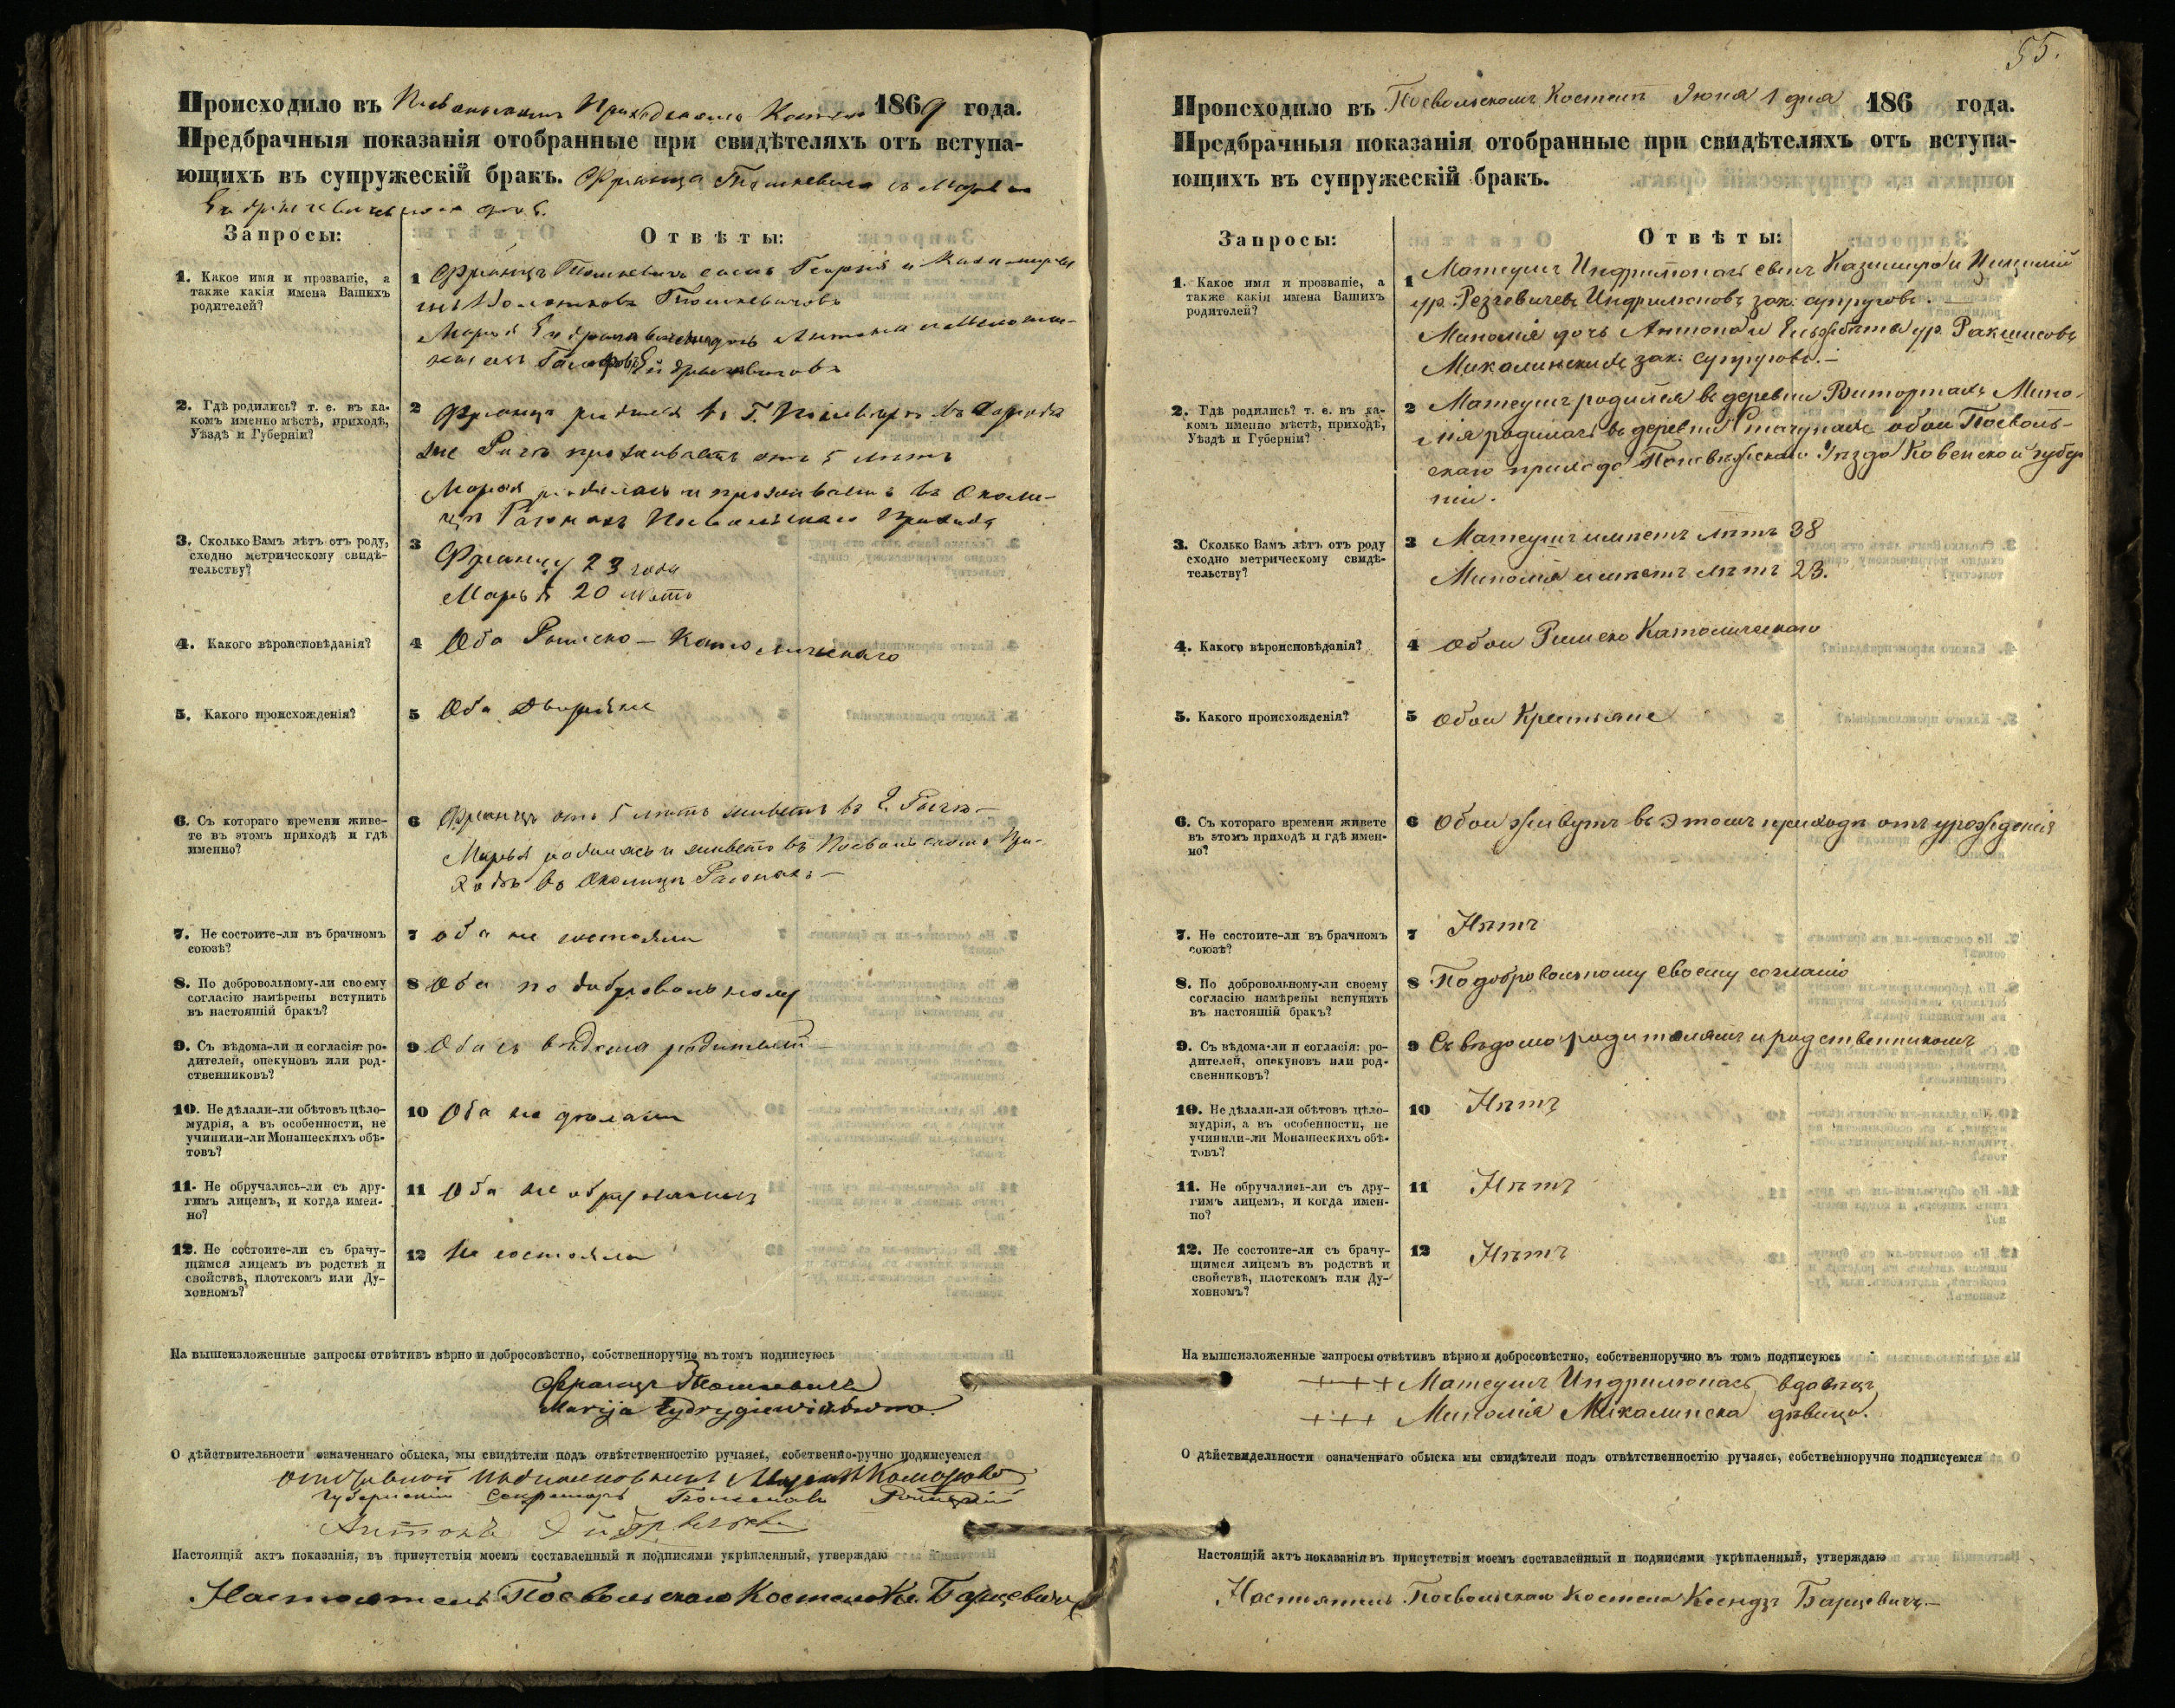 Происходило въ Приходскомъ 1869 года.
Предбрачныя показанія отобранные при свидѣтеляхъ отъ вступа-
ющихъ въ супружескій бракъ. Франца съ
Запросы: Отвѣты:
1. Какое имя и прозваніе, а
также какія имена Вашихъ
родителей?
1 Францъ сынъ Георгія и
2. Гдѣ родились? т. е. въ ка-
комъ именно мѣстѣ, приходѣ,
Уѣздѣ и Губерніи?
2 Францъ въ Г.
проживаетъ отъ 5 лѣтъ
и проживаетъ въ Околи-
цѣ Прихода
3. Сколько Вамъ лѣтъ отъ роду,
сходно метрическому свидѣ-
тельству?
3 Францу 23 года
Марья 20 лѣтъ
4. Какого вѣроисповѣданія?
4 Оба Римско-Католическаго
5. Какого происхожденія?
5 Оба Дворяне
6. Съ котораго времени живе-
те въ этомъ приходѣ и гдѣ
именно?
6 Францъ отъ 5 лѣтъ живетъ въ
Марья родилась и живетъ въ Посвольскомъ При-
ходѣ въ Околицѣ
7. Не состоите-ли въ брачномъ
союзѣ?
7 оба не состояли
8. По добровольному-ли своему
согласію намѣрены вступить
въ настоящій бракъ?
8 Оба по добровольному
9. Съ вѣдома-ли и согласія: ро-
дителей, опекуновъ или род-
ственниковъ?
9 Оба съ вѣдома родителей
10. Не дѣлали-ли обѣтовъ цѣло-
мудрія, а въ особенности, не
учинили-ли Монашескихъ обѣ-
товъ?
10 Оба не дѣлали
11. Не обручались-ли съ дру-
гимъ лицемъ, и когда имен-
но?
11 Оба не обручались
12. Не состоите-ли съ брачу-
щимся лицемъ въ родствѣ и
свойствѣ, плотскомъ или Ду-
ховномъ?
12 Не состояли
На вышеизложенные запросы отвѣтивъ вѣрно и добросовѣстно, собственноручно въ томъ подписуюсь
Францъ
Marija
О дѣйствительности означеннаго обыска, мы свидѣтели подъ отвѣтственностію ручаясь, собственно-ручно подписуемся
Губернскій Секретарь
Антонъ
Настоящій актъ показанія, въ присутствіи моемъ составленный и подписями укрѣпленный, утверждаю
Настоятель Посвольскаго Костела Кс. Барцевичъ
55.
Происходило въ Посвольскомъ Костелѣ Іюня 1 дня 186 года.
Предбрачныя показанія отобранные при свидѣтеляхъ отъ вступа-
ющихъ въ супружескій бракъ.
Запросы: Отвѣты:
1. Какое имя и прозваніе, а
также какія имена Вашихъ
родителей?
1 Матеушъ Индрилюнасъ сынъ Казимира и
ур. Резгевичевъ Индрилюновъ зак. супруговъ.
дочь Антона и Ельжбѣты ур.
Микалинскихъ зак. супруговъ.—
2. Гдѣ родились? т. е. въ ка-
комъ именно мѣстѣ, приходѣ,
Уѣздѣ и Губерніи?
2 Матеушъ родился въ деревни
родилась въ деревни обои Посволь-
скаго прихода Поневѣжскаго Уѣзда Ковенской губер
ніи.
3. Сколько Вамъ лѣтъ отъ роду
сходно метрическому свидѣ-
тельству?
3 Матеушъ имѣетъ лѣтъ 38
имѣетъ лѣтъ 23.
4. Какого вѣроисповѣданія?
4 Обои Римско Католическаго
5. Какого происхожденія?
5 Обои Крестьяне
6. Съ котораго времени живете
въ этомъ приходѣ и гдѣ имен-
но?
6 Обои живутъ въ этомъ приходѣ отъ урожденія
7. Не состоите-ли въ брачномъ
союзѣ?
7 Нѣтъ
8. По добровольному-ли своему
согласію намѣрены вспунить
въ настоящій бракъ?
8 По добровольному своему согласію
9. Съ вѣдома-ли и согласія: ро-
дителей, опекуновъ или род-
свенниковъ?
9 Съ вѣдома родителямъ и родственникомъ
10. Не дѣлали-ли обѣтовъ цѣло-
мудрія, а въ особенности, не
учинили-ли Монашескихъ обѣ-
товъ?
10 Нѣтъ
11. Не обручались-ли съ дру-
гимъ лицемъ, и когда имен-
но?
11 Нѣтъ
12. Не состоите-ли съ брачу-
щимся лицемъ въ родствѣ и
свойствѣ, плотскомъ или Ду-
ховномъ?
12 Нѣтъ
На вышеизложенные запросы отвѣтивъ вѣрно и добросовѣстно, собственноручно въ томъ подписуюсь
+++ Матеушъ Индрилюнасъ вдовецъ
+++ Микалинска дѣвица.
О дѣйствидельности означеннаго обыска мы свидѣтели подъ отвѣтственностію ручаясь, собственноручно подписуемся
Настоящій актъ показанія въ присутствіи моемъ составленный и подписями укрѣпленный, утверждаю
Настоятель Посвольскаго Костела Ксендзъ Барцевичъ.—